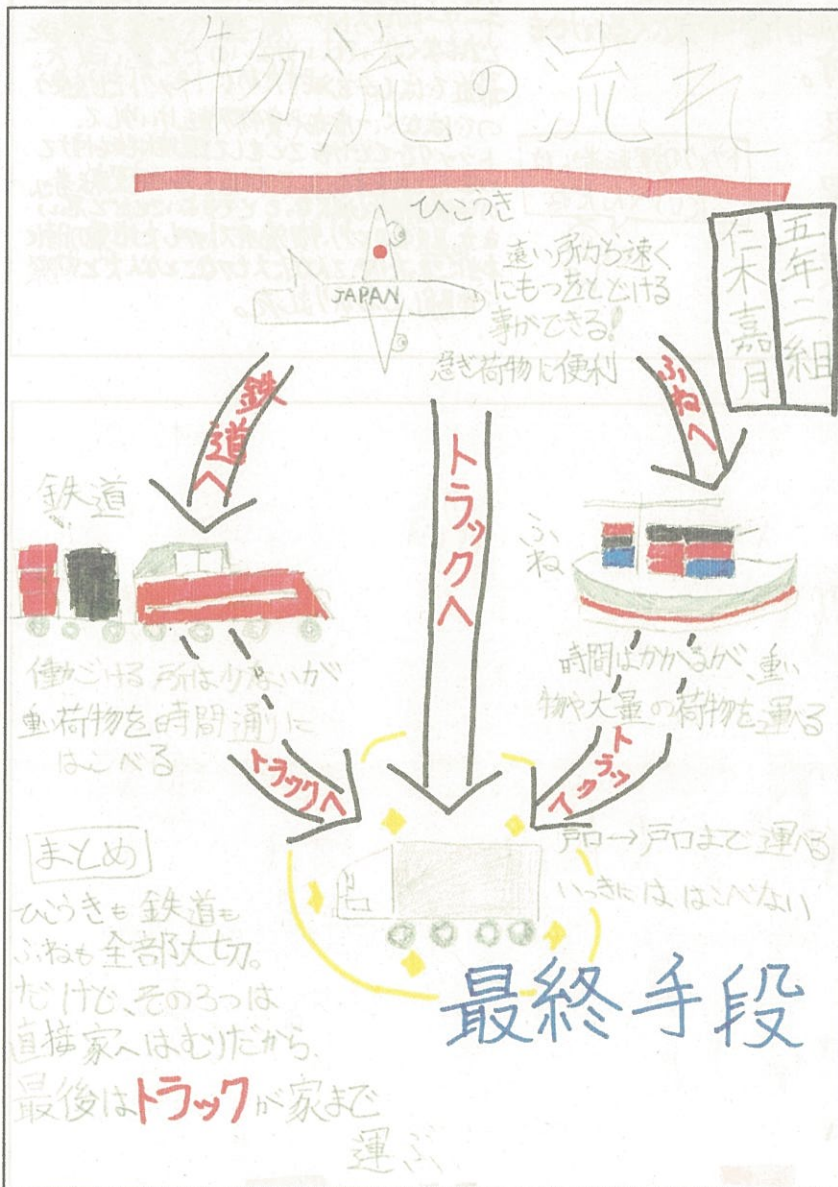 物流の流れ
五年二組
仁木嘉月
ひこうき
遠い所から速く
にもつをとどける
事ができる!
急ぎ荷物に便利
JAPAN
鉄道へ
トラックへ
ふねへ
鉄道
働ごける所は少ないが
重荷物を時間通りに
はこべる
ふね
時間はかかるが、重い
物や大量の荷物を運べる
トラックへ
トラックへ
戸口→戸口まで運べる
いっきにははこべない
最終手段
まとめ
ひこうきも鉄道も
ふねも全部大切。
だけど、その3つは
直接家へはむりだから、
最後はトラックが家まで
運ぶ